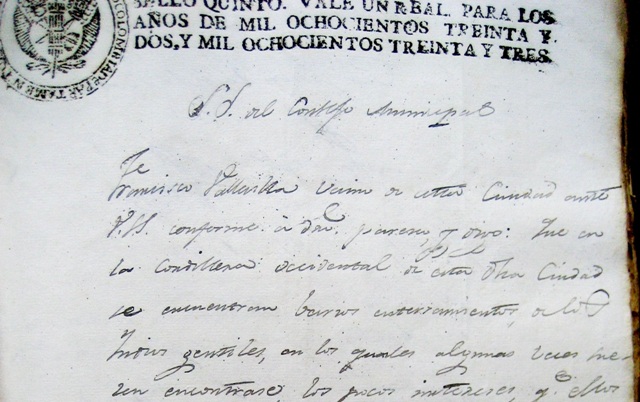 SELLO QUINTO. VALE UN REAL. PARA LOS
AÑOS DE MIL OCHOCIENTOS TREINTA Y
DOS, Y MIL OCHOCIENTOS TREINTA Y TRES.
COLOMBIA
S.S. del Consejo Municipal
Francisco vecino de esta Ciudad ante
V.S. conforme á dro. paresco, y digo: Que en
la Cordillera occidental de esta dha Ciudad
se encuentran barios enterramientos, de los
Indios gentiles, en los quales algunas veces sue
len encontrarse los pocos intereses, q.e ellos